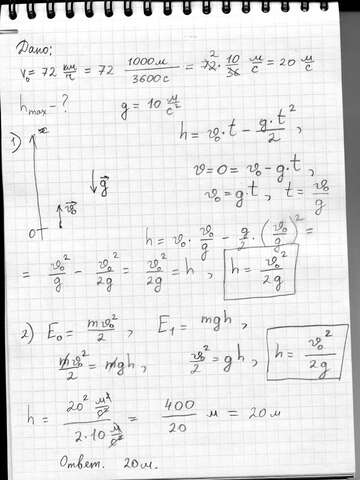 Дано:
v₀ = 72 км/ч = 72 1000м/3600с = 72 · 10/36 м/с = 20 м/с
2
h max - ? g = 10 м/с²
h = v₀ · t - g·t²/2 ,
1)
v = 0 = v₀ - g·t ,
v₀ = g·t , t = v₀/g
g
v₀
0
h = v₀ · v₀/g - g/2 · (v₀/g)² =
= v₀²/g - v₀²/2g = v₀²/2g = h , h = v₀²/2g
2) E₀ = mv₀²/2 , E₁ = mgh ,
mv₀²/2 = mgh , v₀²/2 = gh , h = v₀²/2g
h = 20² м²/с² / 2·10 м/с² = 400/20 м = 20 м
Ответ. 20 м.